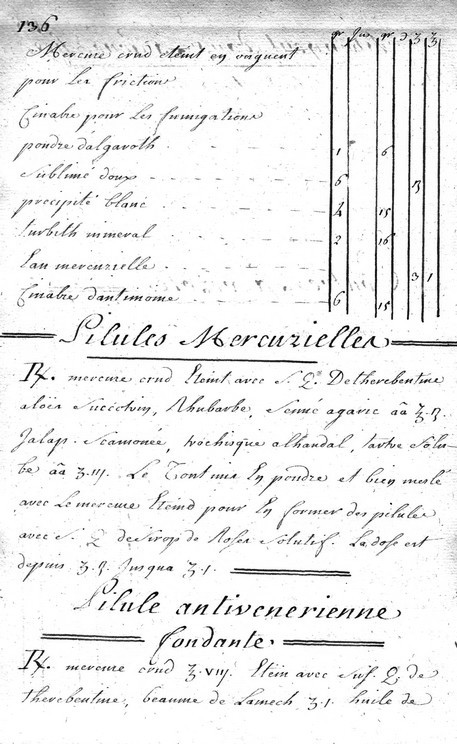 136
gr jus gr ℈ ʒ ℥
Mercure crud eteint en onguent
pour Les friction
Cinabre pour Les fumigations
poudre dalgaroth 1 6
Sublimé doux 6
precipité blanc 4 15
turbith mineral 2 16
Eau mercurielle 3 1
Cinabre dantimoine 6 15
Pilules Mercurielles
℞. mercure crud Eteint avec S. Q. De therebentine
aloës Succotrin, Rhubarbe, Senné agaric āā ʒ.
Jalap. Scamonée, trochisque alhandal, tartre Solu-
be āā ʒ.III. Le Tout mis En poudre et bien meslé
avec Le mercure Eteind pour En former des pilules
avec S. Q de Sirop de Roses Solutif. La dose est
depuis Jusqua ʒ.I.
Pilule antivenerienne
fondante
℞. mercure crud ʒ.VIII. Etein avec Suf. Q. de
therebentine, beaume de Lamech ʒ.I. huile de